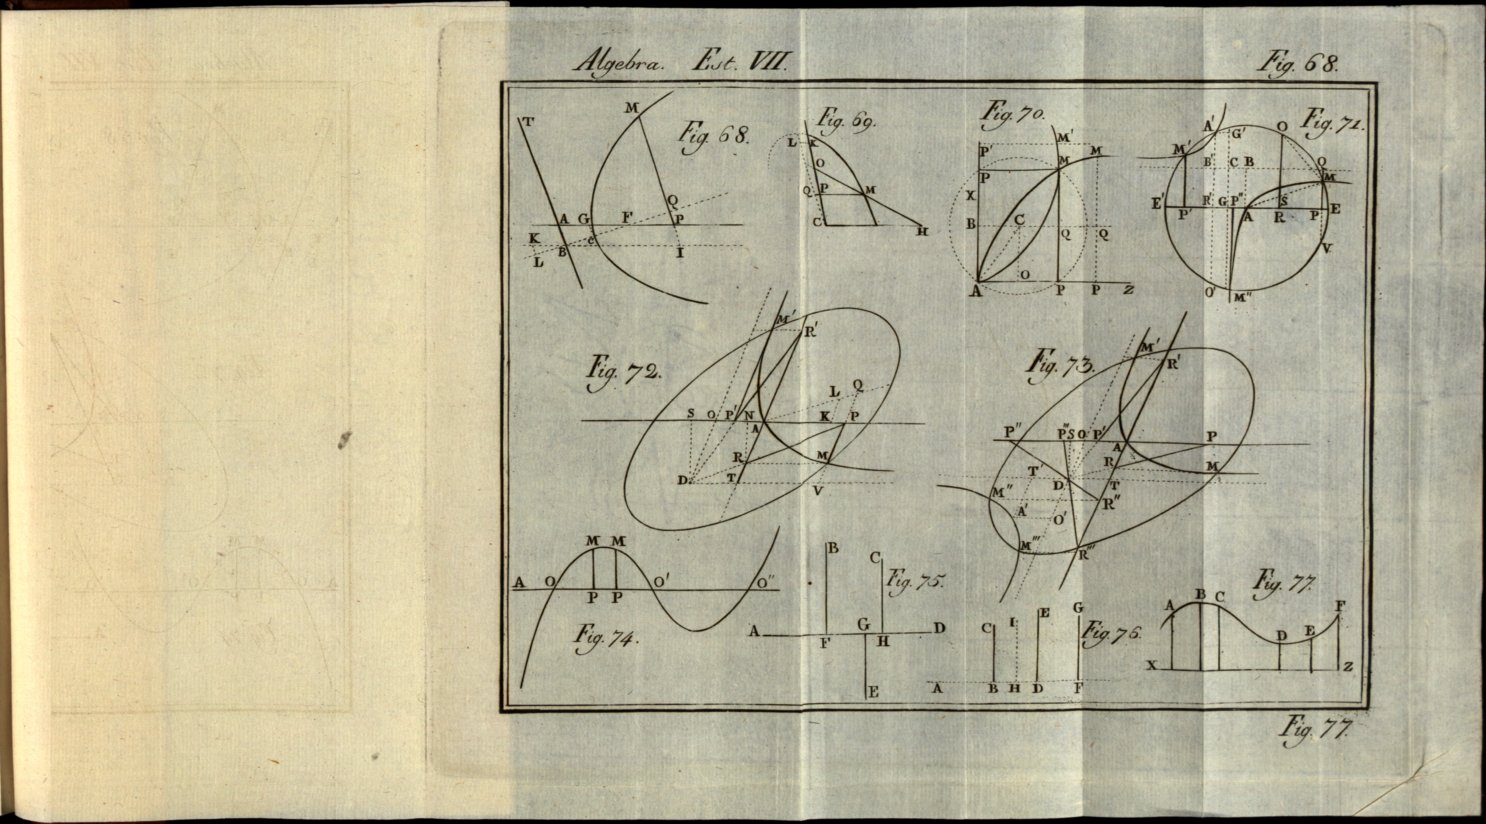 Algebra. Est. VII. Fig. 68.
Fig. 68.
T M
A G F Q P
K L B C I
Fig. 69.
L K O
Q P M
C H
Fig. 70.
P' M' M
P M
X
B C Q Q
A O P P Z
Fig. 71.
A' G' O
M' B' C B Q
M
E' P' R' G P" A S R P E
V
O' M"
Fig. 72.
M' R'
L Q
S O P' N A K P
R M
D T V
Fig. 73.
M' R'
P" P''' S O P' A P
R M
T' D T
M" R"
A' O'
M''' R'''
Fig. 74.
M M
A O P P O' O"
Fig. 75.
B C
A F G H D
E
Fig. 76.
C I E G
A B H D F
Fig. 77.
A B C D E F
X Z
Fig. 77.